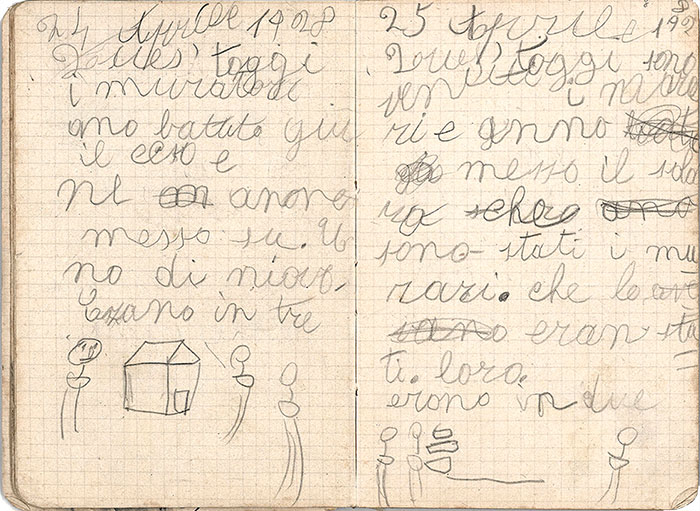 24 Aprile 1928
Ques' toggi
i muratori
ano batuto giu
il ecso e
ne anono
messo su. U
no di niovo.
Erano in tre
25 Aprile 192
8
Ques' toggi sono
venuto i mu
ri e anno
messo il
ra
sono stati i mu
rari. che lo
eran sta
ti. loro.
erono in due